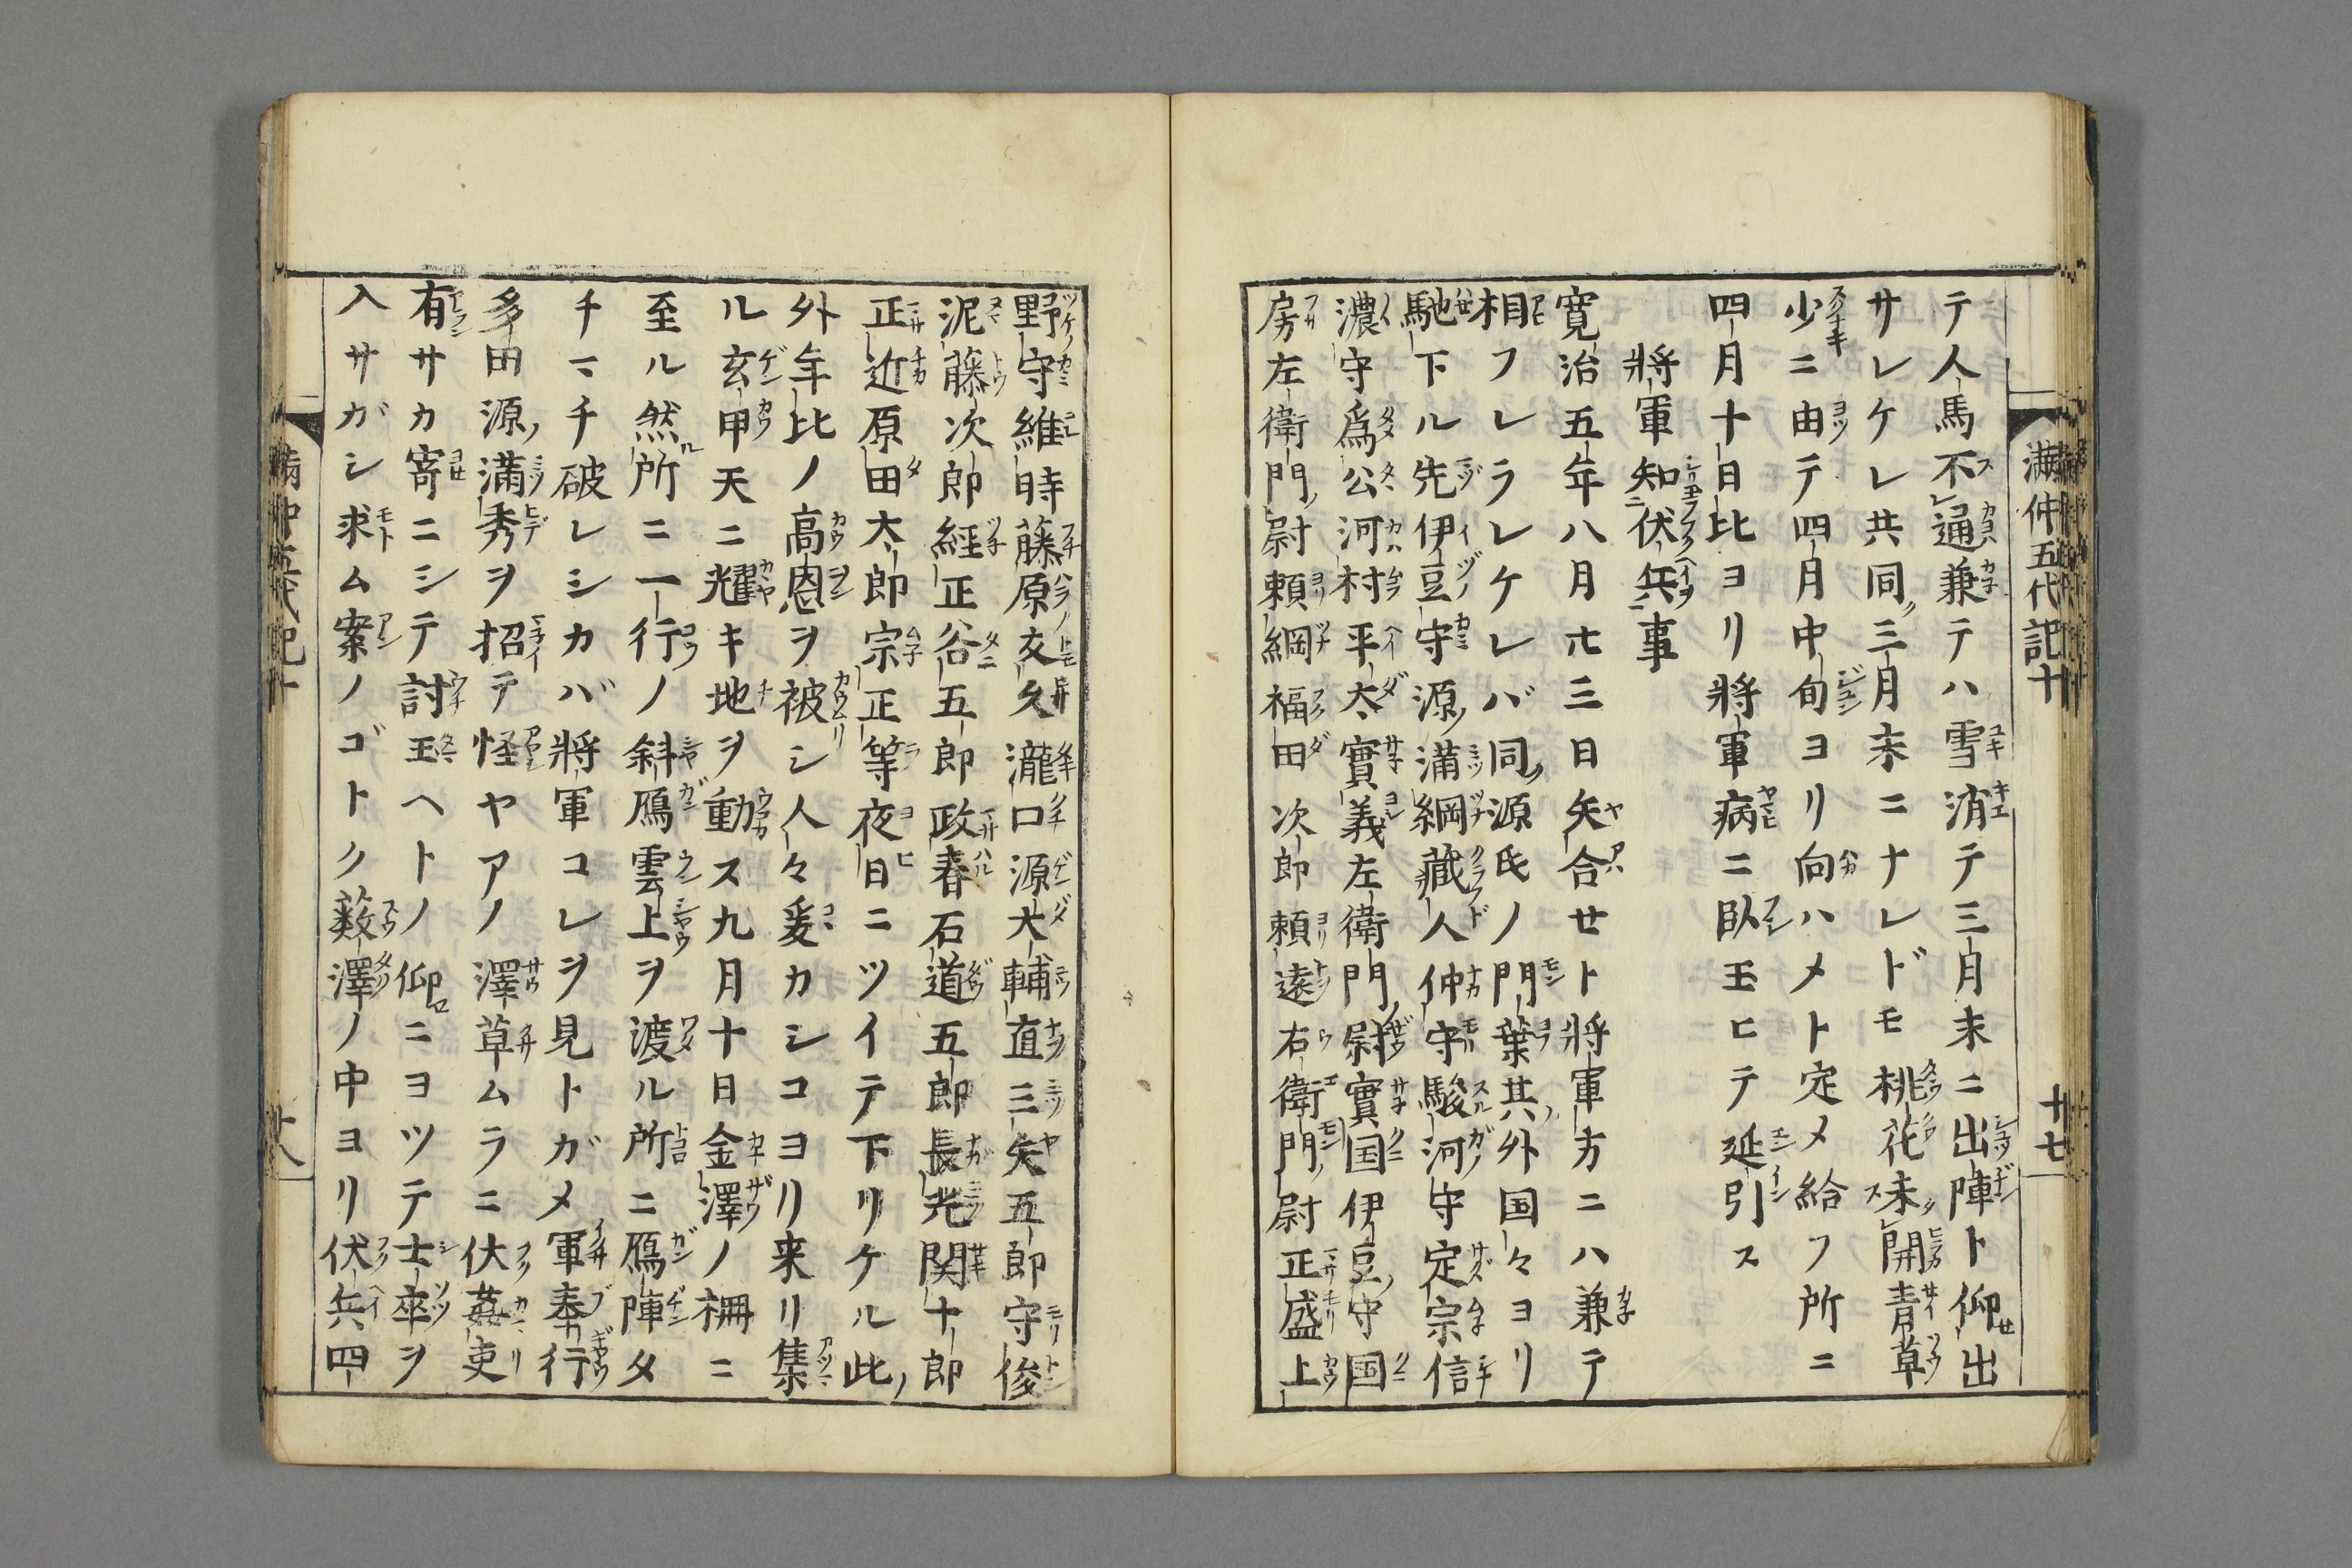 満仲五代記十
十七
テ人馬不通兼テハ雪消テ三月末ニ出陣ト仰出
サレケレ共同三月末ニナレドモ桃花未開青草
少ニ由テ四月中旬ヨリ向ハメト定メ給フ所ニ
四月十日比ヨリ将軍病ニ臥玉ヒテ延引ス
将軍知伏兵事
寛治五年八月廿三日矢合セト将軍方ニハ兼テ
相フレラレケレバ同源氏ノ門葉其外国々ヨリ
馳下ル先伊豆守源満綱蔵人仲守駿河守定宗信
濃守為公河村平太實義左衛門尉實国伊豆守国
房左衛門尉頼綱福田次郎頼遠右衛門尉正盛上
野守維時藤原友久瀧口源大輔直三矢五郎守俊
泥藤次郎經正谷五郎政春石道五郎長光関十郎
正近原田大郎宗正等夜日ニツイテ下リケル此
外年比ノ高恩ヲ被シ人々爰カシコヨリ来リ集
ル玄甲天ニ耀キ地ヲ動ス九月十日金澤ノ柵ニ
至ル然所ニ一行ノ斜鴈雲上ヲ渡ル所ニ鴈陣タ
チマチ破レシカバ将軍コレヲ見トガメ軍奉行
多田源満秀ヲ招テ怪ヤアノ澤草ムラニ伏姦吏
有サカ寄ニシテ討玉ヘトノ仰ニヨツテ士卒ヲ
入サガシ求ム案ノゴトク薮澤ノ中ヨリ伏兵四
満仲五代記十
十八